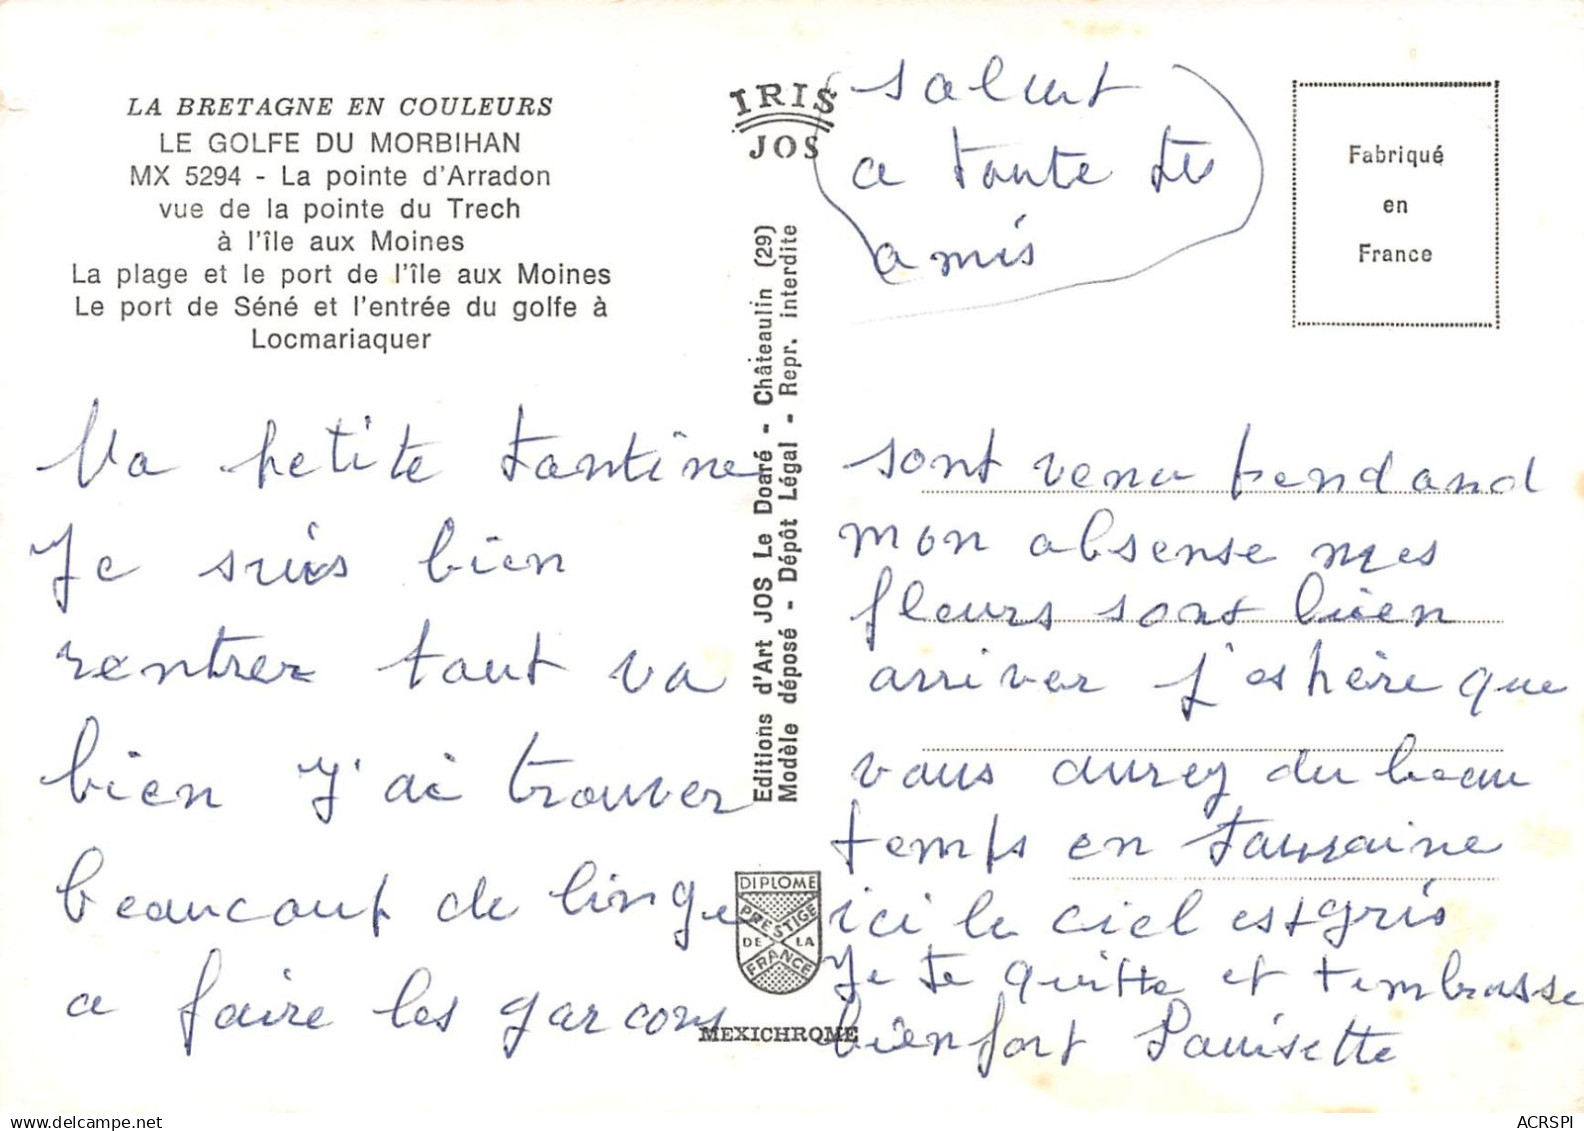 LA BRETAGNE EN COULEURS
LE GOLFE DU MORBIHAN
MX 5294 - La pointe d'Arradon
vue de la pointe du Trech
à l'île aux Moines
La plage et le port de l'île aux Moines
Le port de Séné et l'entrée du golfe à
Locmariaquer
Ma petite tantine
Je suis bien
rentrer tout va
bien J'ai trouver
beaucoup de linge
a faire les garcons
IRIS
JOS
Editions d'Art JOS Le Doaré - Châteaulin (29)
Modèle déposé - Dépôt Légal - Repr. interdite
DIPLOME
PRESTIGE
DE LA
FRANCE
MEXICHROME
salut
a toute tes
amis
Fabriqué
en
France
sont venu pendand
mon absense mes
fleurs sont bien
arriver j'espère que
vous aurez du beau
temps en Touraine
ici le ciel est gris
Je te quitte et t'embrasse
bien fort Louisette
ACRSPI